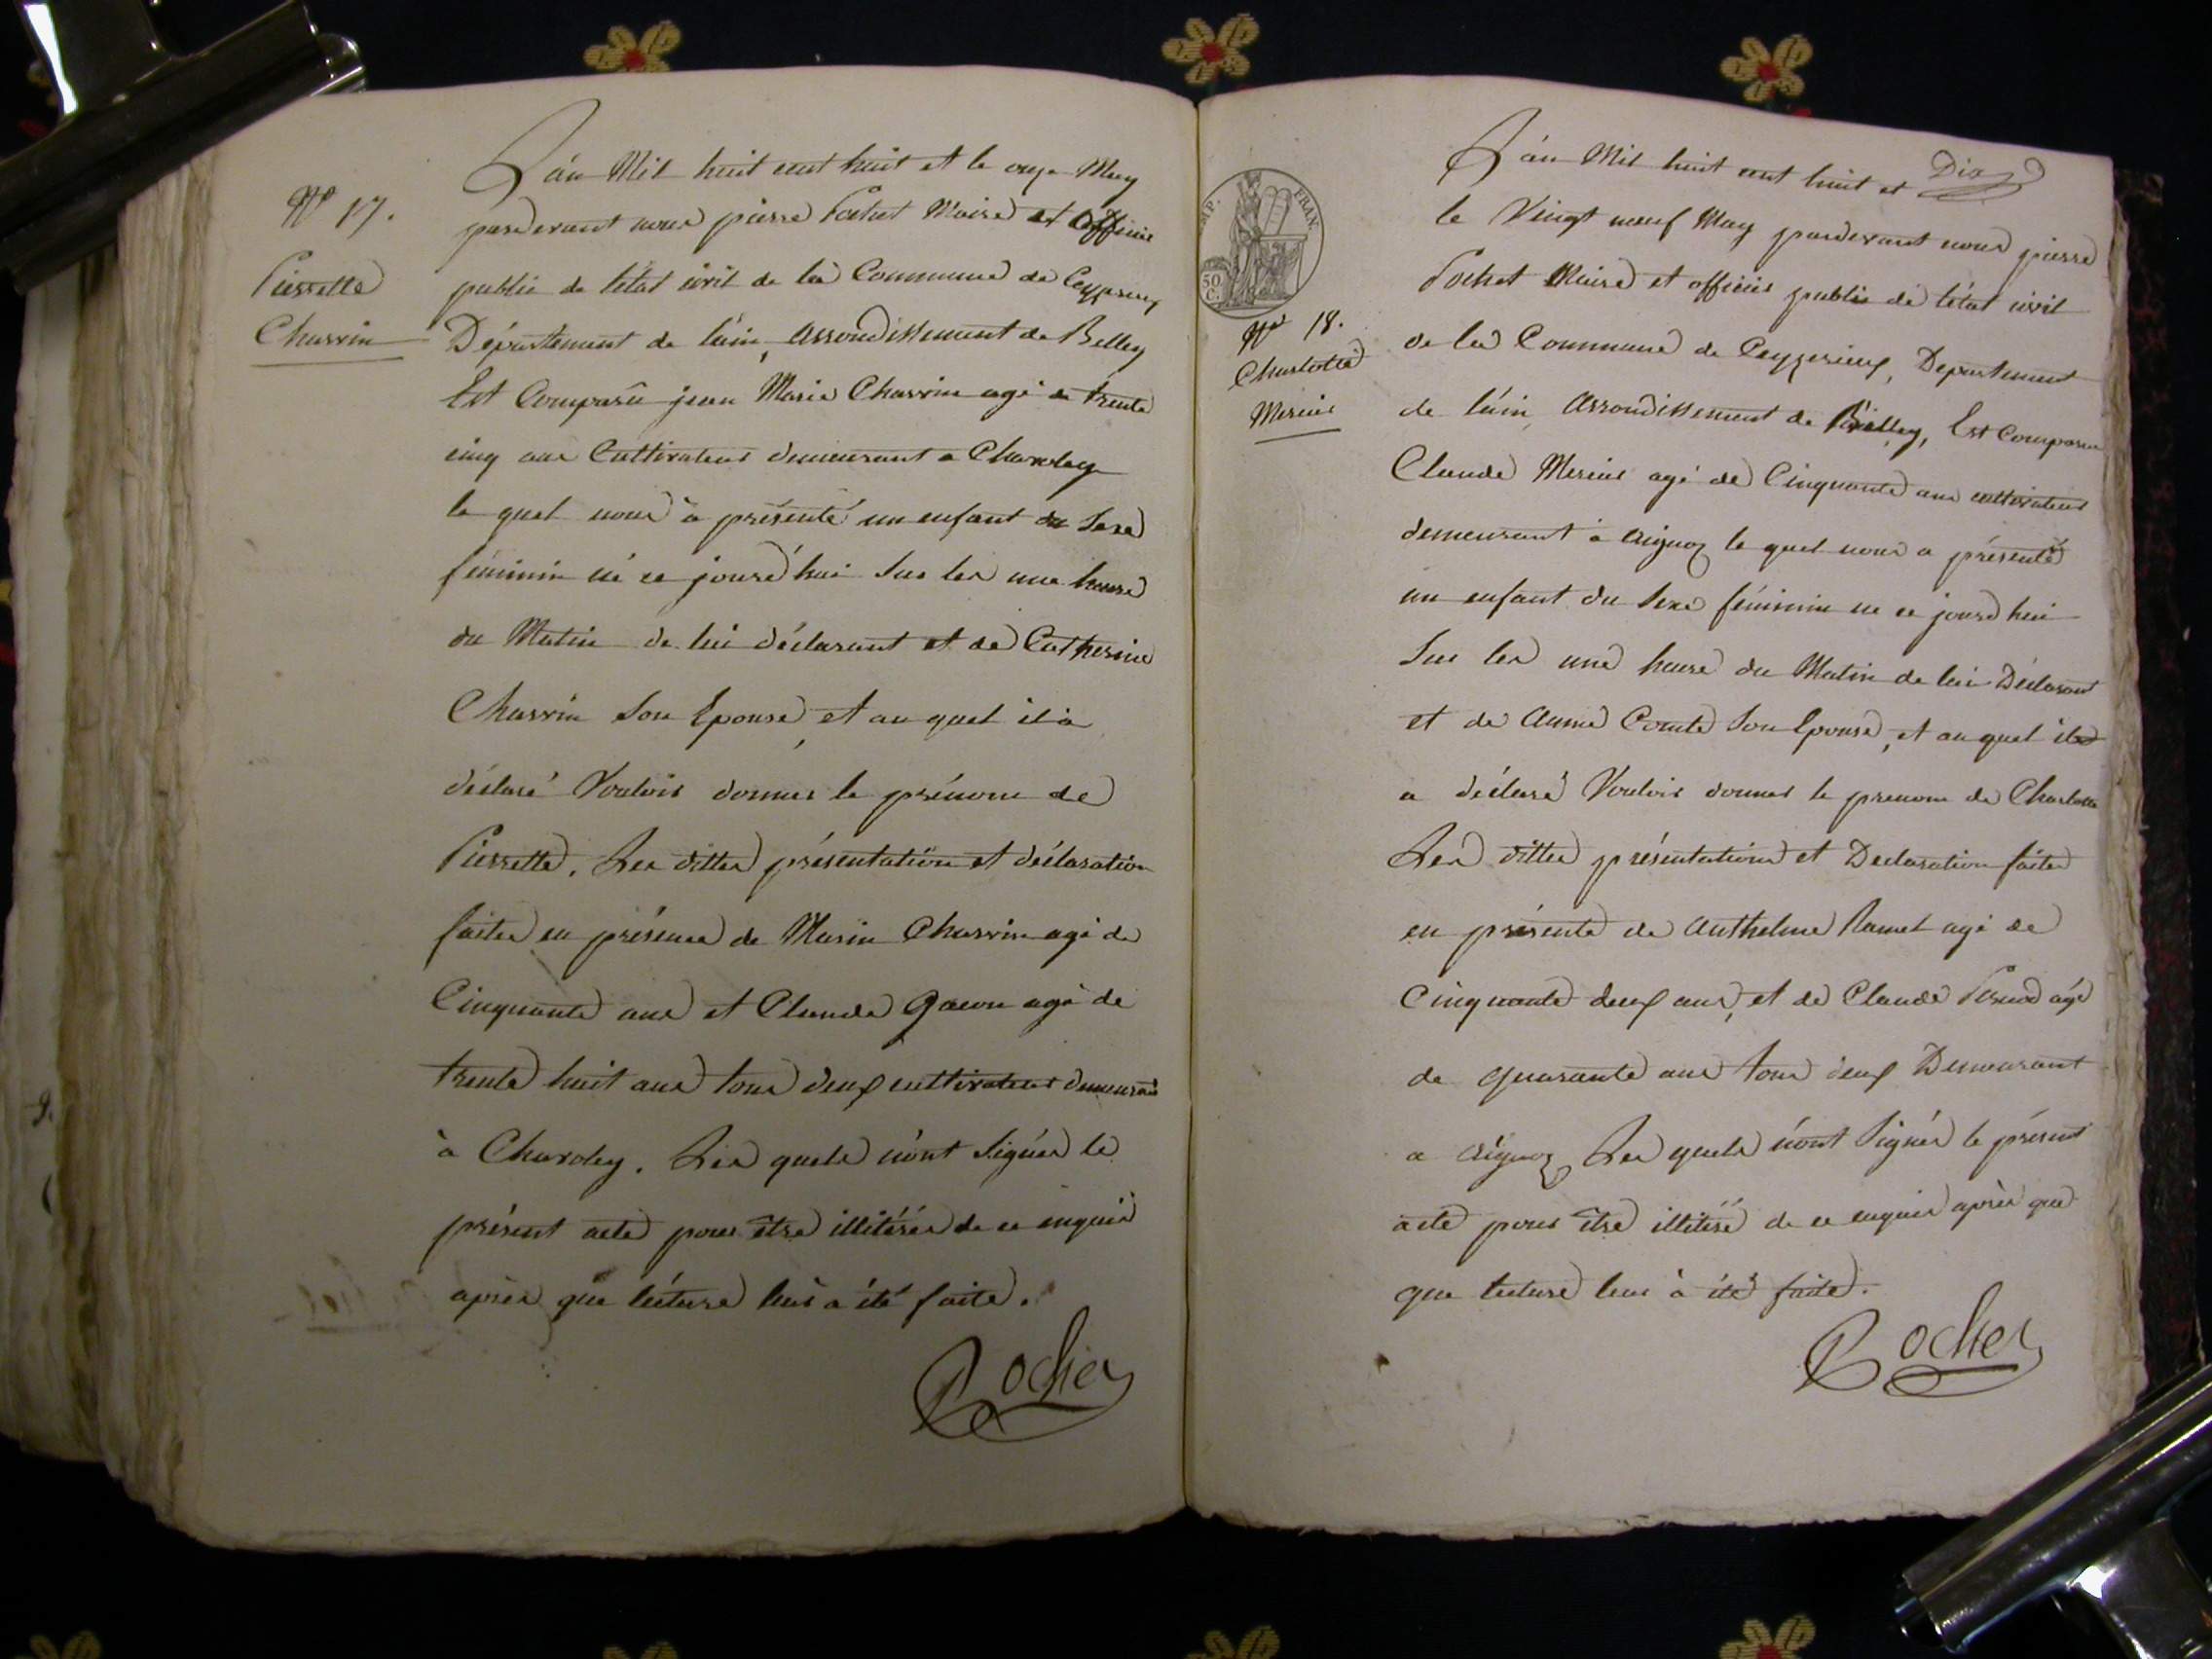 N° 17.
Pierrette
Charrin
L'an Mil huit cent huit et le onze May
pardevant nous pierre Pochet Maire et officier
public de l'état civil de la Commune de Ceyzerieux
Département de l'ain, arrondissement de Belley
Est Comparû jean Marie Charrin agé de trente
cinq ans Cultivateur demeurant a Chavoley
le quel nous à présenté un enfant du Sexe
féminin né ce jourd'hui Sur les une heure
du Matin de lui déclarant et de Catherine
Charrin Son Epouse, et au quel il à
déclaré Vouloir donner le prénom de
Pierrette. Les dittes présentation et déclaration
faites en présence de Marin Charrin agé de
Cinquante ans et Claude Gacon agé de
trente huit ans tous deux cultivateurs demeurans
à Chavoley. Les quels n'ont signés le
présent acte pour être illitérés de ce enquis
après que lécture leur a été faite.
Pochet
Dix
IMP. FRAN.
50 C.
N° 18.
Charlotte
Mercier
L'an Mil huit cent huit et
le Vingt neuf May pardevant nous pierre
Pochet Maire et officier public de l'état civil
de la Commune de Ceyzerieux, Departement
de l'ain, arrondissement de Belley, Est Comparu
Claude Mercier agé de Cinquante ans cultivateur
demeurant à aignoz le quel nous a présenté
un enfant du Sexe féminin né ce jourd'hui
Sur les une heure du Matin de lui Déclarant
et de Anne Comte Son Epouse, et au quel il
a déclaré Vouloir donner le prenom de Charlotte
Les dittes présentations et Declaration faites
en présente de Anthelme Ramel agé de
Cinquante deux ans, et de Claude agé
de quarante ans tous deux Demeurant
a aignoz Les quels n'ont Signés le présent
acte pour être illitéré de ce enquis après que
que lecture leur à été faite.
Pochet